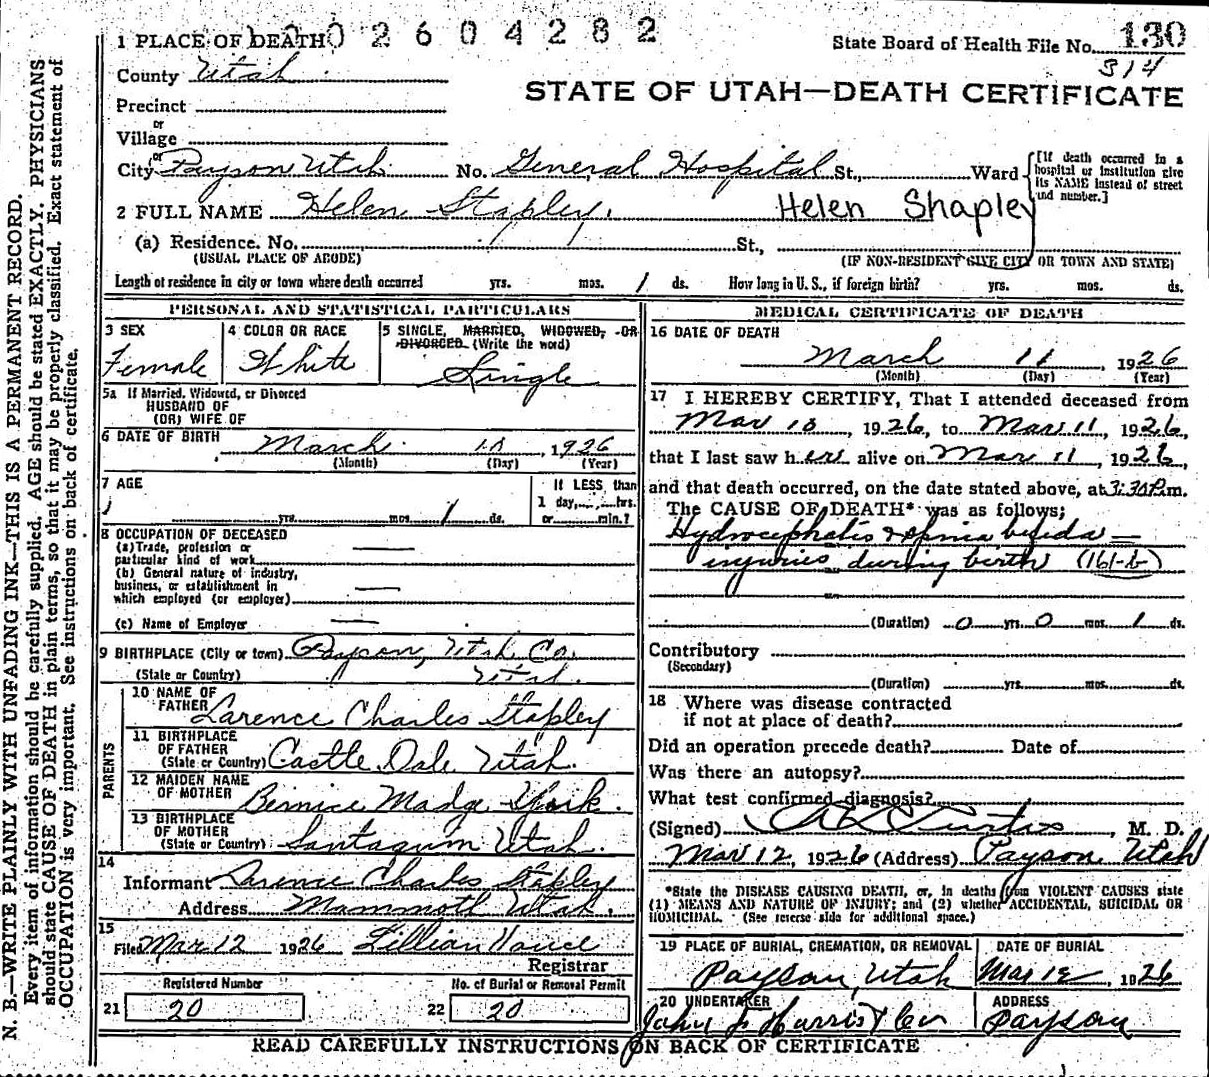 2602604282
1 PLACE OF DEATH
State Board of Health File No. 130
314
County Utah
STATE OF UTAH—DEATH CERTIFICATE
Precinct
or
Village
or
City Payson Utah No. General Hospital St., Ward
[If death occurred in a hospital or institution give its NAME instead of street and number.]
2 FULL NAME Helen Stapley. Helen Shapley
(a) Residence. No. St.,
(USUAL PLACE OF ABODE) (IF NON-RESIDENT GIVE CITY OR TOWN AND STATE)
Length of residence in city or town where death occurred yrs. mos. 1 ds. How long in U. S., if foreign birth? yrs. mos. ds.
PERSONAL AND STATISTICAL PARTICULARS
3 SEX
Female
4 COLOR OR RACE
White
5 SINGLE, MARRIED, WIDOWED, OR
DIVORCED (Write the word)
Single
5a If Married, Widowed, or Divorced
HUSBAND OF
(OR) WIFE OF
6 DATE OF BIRTH March 10, 1926
(Month) (Day) (Year)
7 AGE
yrs. mos. 1 ds.
If LESS than
1 day, hrs.
or min.?
8 OCCUPATION OF DECEASED
(a) Trade, profession or
particular kind of work
(b) General nature of industry,
business, or establishment in
which employed (or employer)
(c) Name of Employer
9 BIRTHPLACE (City or town) Payson, Utah Co.
(State or Country) Utah.
PARENTS
10 NAME OF
FATHER Larence Charles Stapley
11 BIRTHPLACE
OF FATHER
(State or Country) Castle Dale Utah.
12 MAIDEN NAME
OF MOTHER Bernice Madge York.
13 BIRTHPLACE
OF MOTHER
(State or Country) Santaquin Utah.
14
Informant Larence Charles Stapley
Address Mammoth Utah.
15
Filed Mar 12 1926 Lillian Vance
Registrar
Registered Number
21 20
No. of Burial or Removal Permit
22 20
MEDICAL CERTIFICATE OF DEATH
16 DATE OF DEATH
March 11, 1926
(Month) (Day) (Year)
17 I HEREBY CERTIFY, That I attended deceased from
Mar 10, 1926, to Mar 11, 1926,
that I last saw her alive on Mar 11, 1926,
and that death occurred, on the date stated above, at 3:30 P.m.
The CAUSE OF DEATH* was as follows;
Hydrocephalis & spina bifida —
injuries during birth (161-b)
(Duration) 0 yrs. 0 mos. 1 ds.
Contributory
(Secondary)
(Duration) yrs. mos. ds.
18 Where was disease contracted
if not at place of death?
Did an operation precede death? Date of
Was there an autopsy?
What test confirmed diagnosis?
(Signed) A L Curtis, M. D.
Mar 12, 1926 (Address) Payson Utah
*State the DISEASE CAUSING DEATH, or, in deaths from VIOLENT CAUSES state
(1) MEANS AND NATURE OF INJURY; and (2) whether ACCIDENTAL, SUICIDAL OR
HOMICIDAL. (See reverse side for additional space.)
19 PLACE OF BURIAL, CREMATION, OR REMOVAL
Payson, Utah
DATE OF BURIAL
Mar 12, 1926
20 UNDERTAKER
John J. Harris
ADDRESS
Payson
READ CAREFULLY INSTRUCTIONS ON BACK OF CERTIFICATE
N. B.—WRITE PLAINLY WITH UNFADING INK—THIS IS A PERMANENT RECORD.
Every item of information should be carefully supplied. AGE should be stated EXACTLY. PHYSICIANS
should state CAUSE OF DEATH in plain terms, so that it may be properly classified. Exact statement of
OCCUPATION is very important. See instructions on back of certificate.